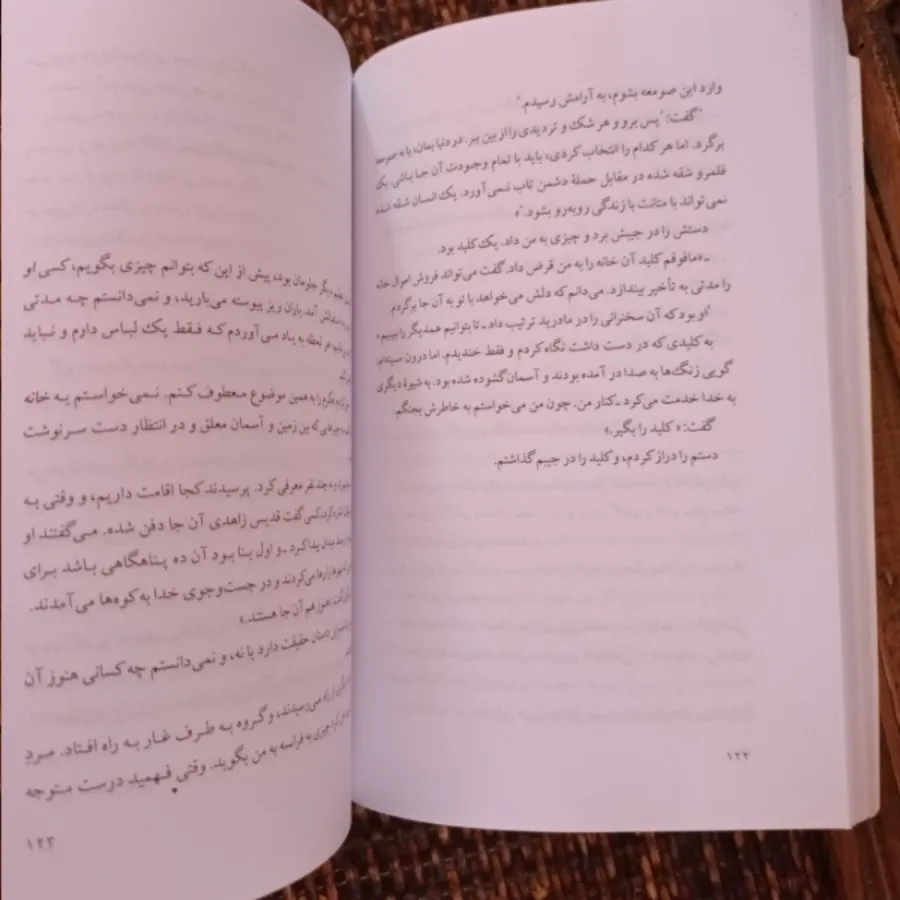 وارد این صومعه بشوم، به آرامش رسیدم."
"گفت: "پس برو و هر شک و تردیدی را از بین ببر. در دنیا بمان، یا به صومعه
برگرد. اما هر کدام را انتخاب کردی، باید با تمام وجودت آن جا باشی. یک
قلمرو شقه شده در مقابل حملهٔ دشمن تاب نمی‌آورد. یک انسان شقه شده
نمی‌تواند با متانت با زندگی روبه‌رو بشود."»
دستش را در جیبش برد و چیزی به من داد. یک کلید بود.
ـ «مافوقم کلید آن خانه را به من قرض داد. گفت می‌تواند فروش اموال خانه
را مدتی به تأخیر بیندازد. می‌دانم که دلش می‌خواهد با تو به آن جا برگردم.
"او بود که آن سخنرانی را در مادرید ترتیب داد ـ تا بتوانیم همدیگر را ببینیم»
به کلیدی که در دست داشت نگاه کردم و فقط خندیدم. اما درون سینه‌ام،
گویی زنگ‌ها به صدا در آمده بودند و آسمان گشوده شده بود. به شیوهٔ دیگری
به خدا خدمت می‌کرد ـ کنار من. چون من می‌خواستم به خاطرش بجنگم.
گفت: « کلید را بگیر.»
دستم را دراز کردم، و کلید را در جیبم گذاشتم.
۱۲۲
دیگر جلومان بود، پیش از این که بتوانم چیزی بگویم، کسی او
آمد. باران ریز پیوسته می‌بارید، و نمی‌دانستم چه مدتی
هر لحظه به یاد می‌آوردم که فقط یک لباس دارم و نباید
را به همین موضوع معطوف کنم. نمی‌خواستم به خانه
که بین زمین و آسمان معلق و در انتظار دست سرنوشت
به چند نفر معرفی کرد. پرسیدند کجا اقامت داریم، و وقتی به
کسی گفت قدیس زاهدی آن جا دفن شده. می‌گفتند او
پیدا کرد ـ و اول بنا بود آن ده پناهگاهی باشد برای
می‌کردند و در جست‌وجوی خدا به کوه‌ها می‌آمدند.
هنوز هم آن جا هستند.»
داستان حقیقت دارد یا نه، و نمی‌دانستم چه کسانی هنوز آن
از راه می‌رسیدند، و گروه به طرف غار به راه افتاد. مرد
چیزی به فرانسه به من بگوید. وقتی فهمید درست متوجه
۱۲۳